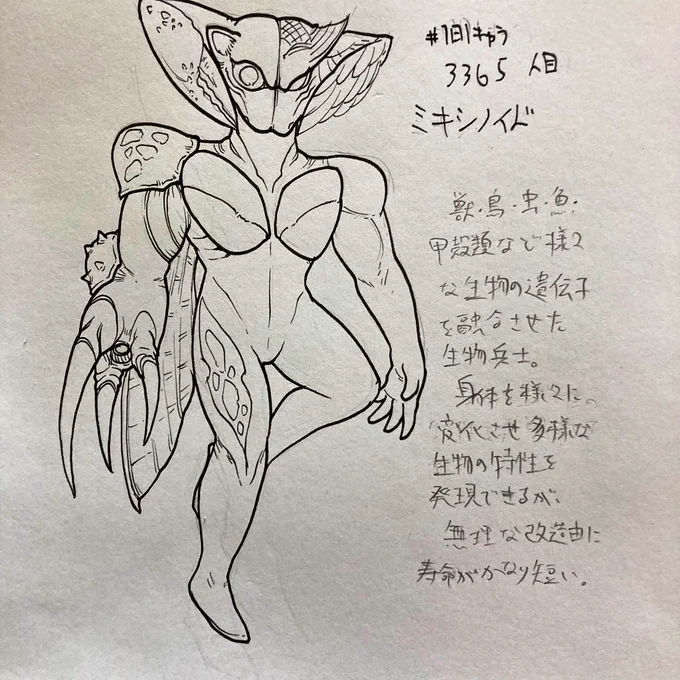 #1日1きゃら
3365人目
ミキシノイド
獣・鳥・虫・魚・
甲殻類など様々
な生物の遺伝子
を融合させた
生物兵士。
身体を様々に
変化させ多様な
生物の特性を
発現できるが、
無理な改造由に
寿命がかなり短い。